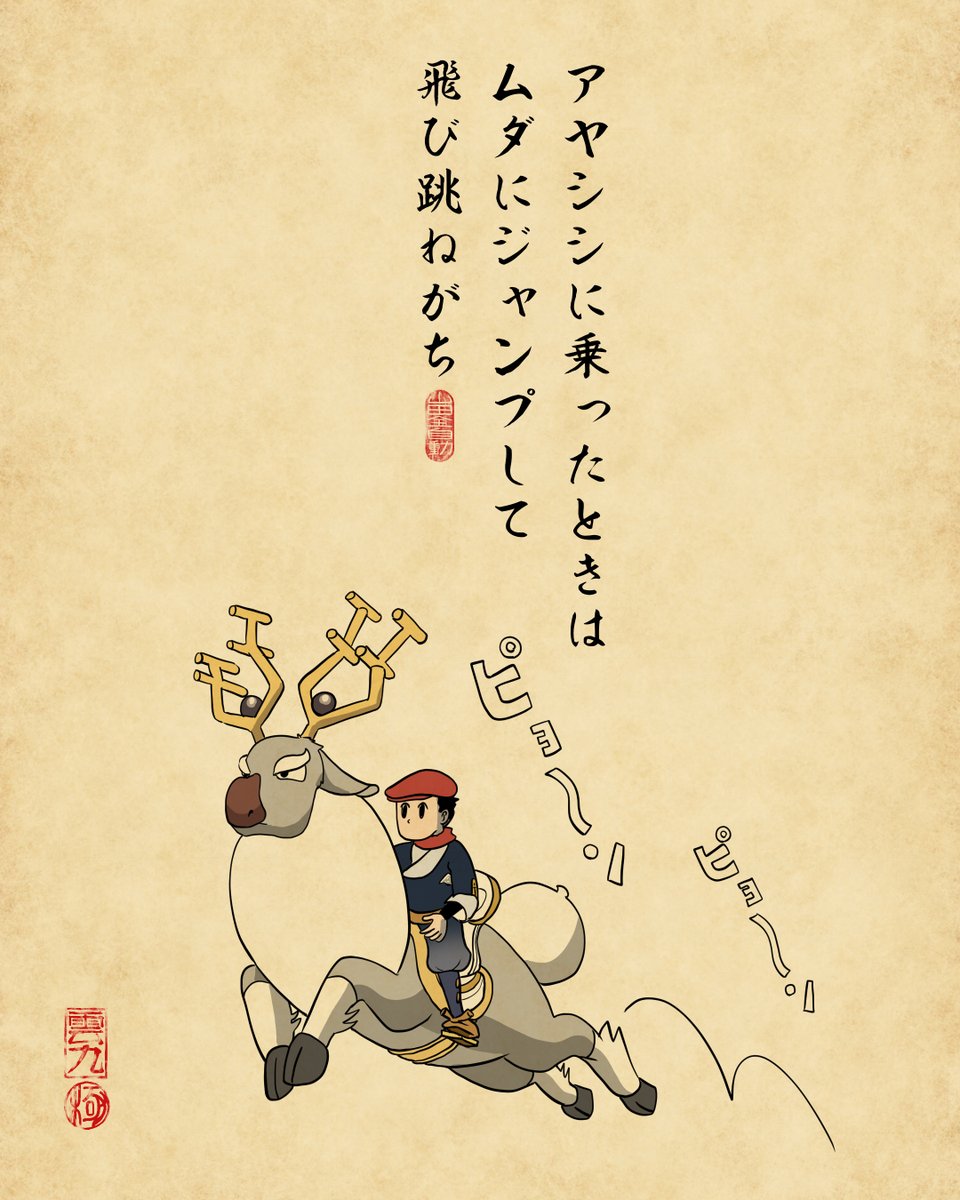 アヤシシに乗ったときは
ムダにジャンプして
飛び跳ねがち
ピョ〜ン!
ピョ〜ン!